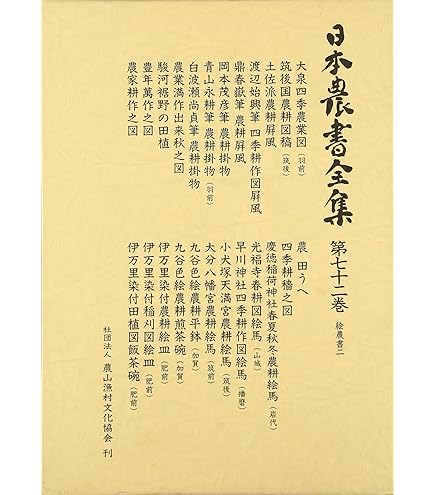 日本農書全集
第七十二巻
絵農書二
大泉四季農業図（羽前）
筑後国農耕図稿（筑後）
土佐派農耕屏風
渡辺始興筆 四季耕作図屏風
鼎春嶽筆 農耕屏風
岡本茂彦筆 農耕掛物
青山永耕筆 農耕掛物（羽前）
白波瀬尚貞筆 農耕掛物
農業満作出来秋之図
駿河裾野の田植
豊年萬作之図
農家耕作之図
農 田うへ
四季耕穡之図
慶徳稲荷神社春夏秋冬農耕絵馬（岩代）
光福寺春耕図絵馬（山城）
早川神社四季耕作図絵馬（播磨）
小犬塚天満宮農耕絵馬（筑後）
大分八幡宮農耕絵馬（筑前）
九谷色絵農耕平鉢（加賀）
九谷色絵農耕煎茶碗（加賀）
伊万里染付農耕絵皿（肥前）
伊万里染付稲刈図絵皿（肥前）
伊万里染付田植図飯茶碗（肥前）
社団法人 農山漁村文化協会 刊